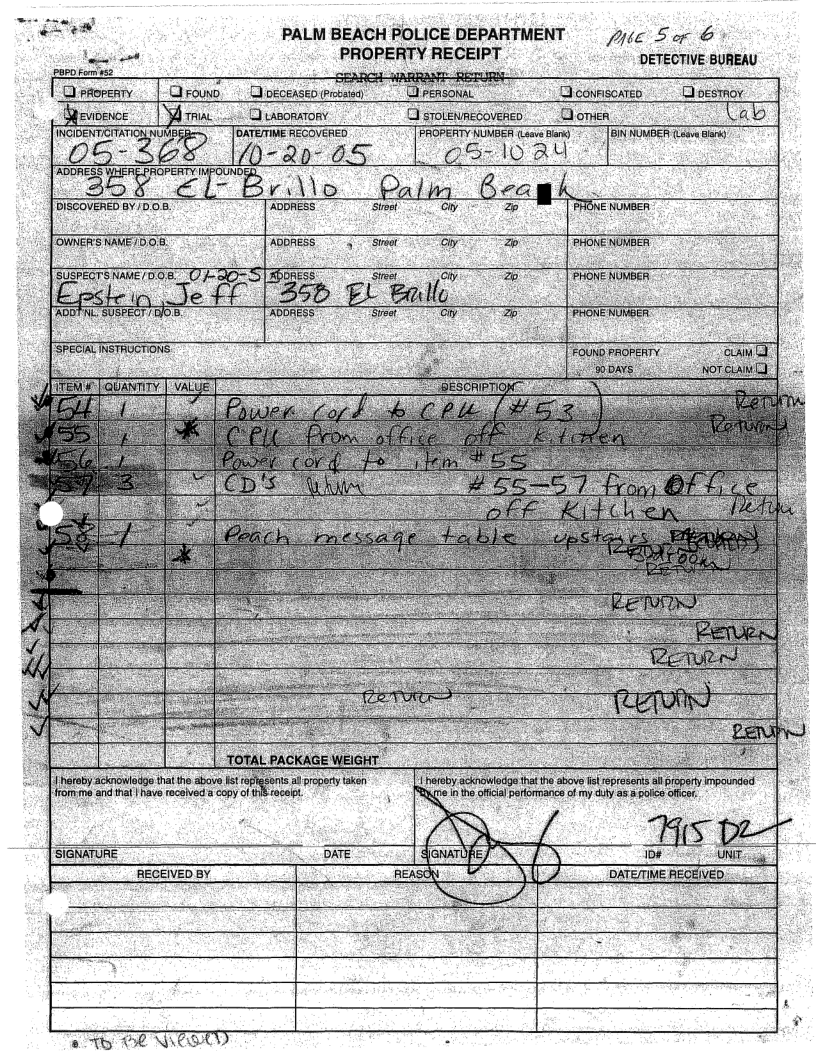 PALM BEACH POLICE DEPARTMENT
PAGE 5 of 6
PROPERTY RECEIPT
DETECTIVE BUREAU
PBPD Form #52
SEARCH WARRANT RETURN
PROPERTY FOUND DECEASED (Probated) PERSONAL CONFISCATED DESTROY
EVIDENCE TRIAL LABORATORY STOLEN/RECOVERED OTHER Lab
INCIDENT/CITATION NUMBER DATE/TIME RECOVERED PROPERTY NUMBER (Leave Blank) BIN NUMBER (Leave Blank)
05-368 10-20-05 05-1024
ADDRESS WHERE PROPERTY IMPOUNDED
358 EL-Brillo Palm Beach
DISCOVERED BY / D.O.B. ADDRESS Street City Zip PHONE NUMBER
OWNER'S NAME / D.O.B. ADDRESS Street City Zip PHONE NUMBER
SUSPECT'S NAME / D.O.B. 01-20-53 ADDRESS Street City Zip PHONE NUMBER
Epstein, Jeff 358 El Brillo
ADDT'NL. SUSPECT / D.O.B. ADDRESS Street City Zip PHONE NUMBER
SPECIAL INSTRUCTIONS FOUND PROPERTY CLAIM
90 DAYS NOT CLAIM
ITEM # QUANTITY VALUE DESCRIPTION
54 1 Power cord to CPU (#53) Return
55 1 CPU from office off Kitchen Return
56 1 Power cord to item #55
57 3 CD's return #55-57 from Office
off Kitchen Return
58 1 Peach message table upstairs
RETURN
RETURN
RETURN
RETURN
RETURN RETURN
RETURN
TOTAL PACKAGE WEIGHT
I hereby acknowledge that the above list represents all property taken
from me and that I have received a copy of this receipt.
I hereby acknowledge that the above list represents all property impounded
by me in the official performance of my duty as a police officer.
7915 D2
SIGNATURE DATE SIGNATURE ID# UNIT
RECEIVED BY REASON DATE/TIME RECEIVED
• TO BE VIEWED